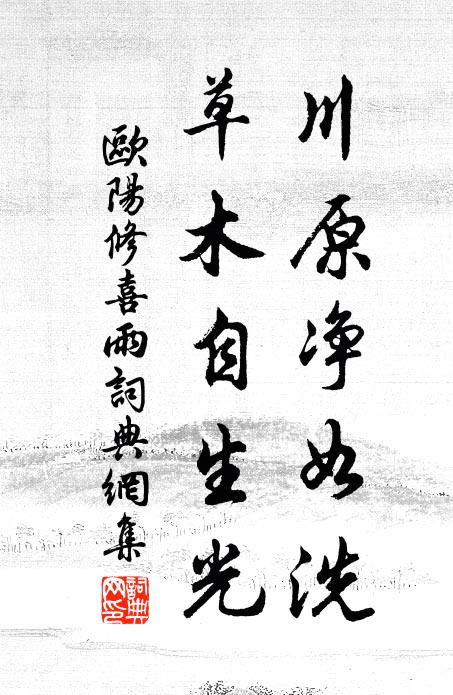 川原净如洗
草木自生光
歐陽修喜雨詞典網集
詞典
网印